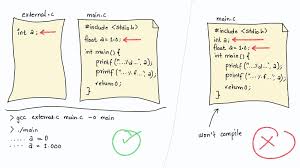 external.c
int a;
main.c
#include <stdio.h>
float a=1.0;
int main() {
printf("...%d...", a);
printf("...%f...", a);
return 0;
}
> gcc external.c main.c -o main
> ./main
..... a = 0
..... a = 1.000
main.c
#include <stdio.h>
int a;
float a=1.0;
int main() {
printf("...%d...", a);
printf("...%f...", a);
return 0;
}
won't compile